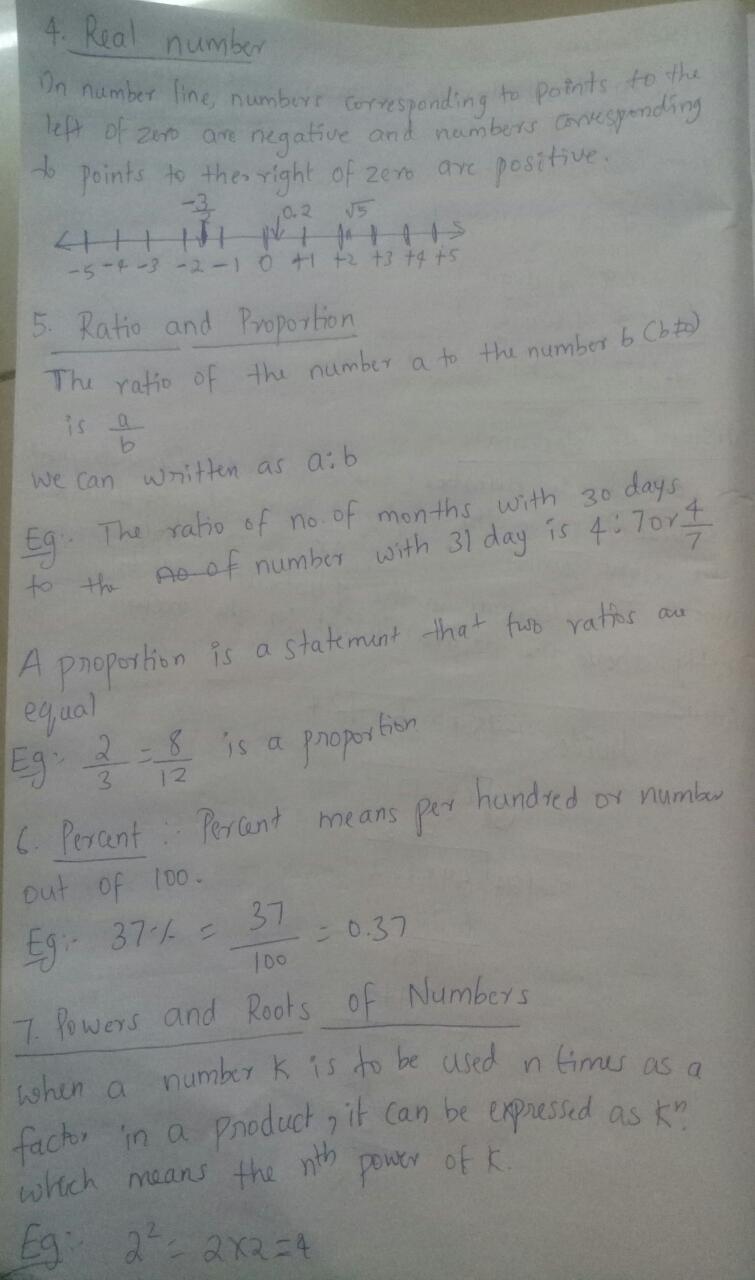 4. Real number
On number line, numbers corresponding to points to the
left of zero are negative and numbers corresponding
to points to the right of zero are positive.
-3/2 0.2 √5
-5 -4 -3 -2 -1 0 +1 +2 +3 +4 +5
5. Ratio and Proportion
The ratio of the number a to the number b (b≠0)
is a/b
we can written as a:b
Eg:- The ratio of no. of months with 30 days
to the No of number with 31 day is 4:7 or 4/7
A proportion is a statement that two ratios are
equal
Eg:- 2/3 = 8/12 is a proportion
6. Percent :- Percent means per hundred or number
out of 100.
Eg:- 37% = 37/100 = 0.37
7. Powers and Roots of Numbers
when a number K is to be used n times as a
factor in a product, it can be expressed as Kⁿ.
which means the nth power of K.
Eg:- 2² = 2x2=4